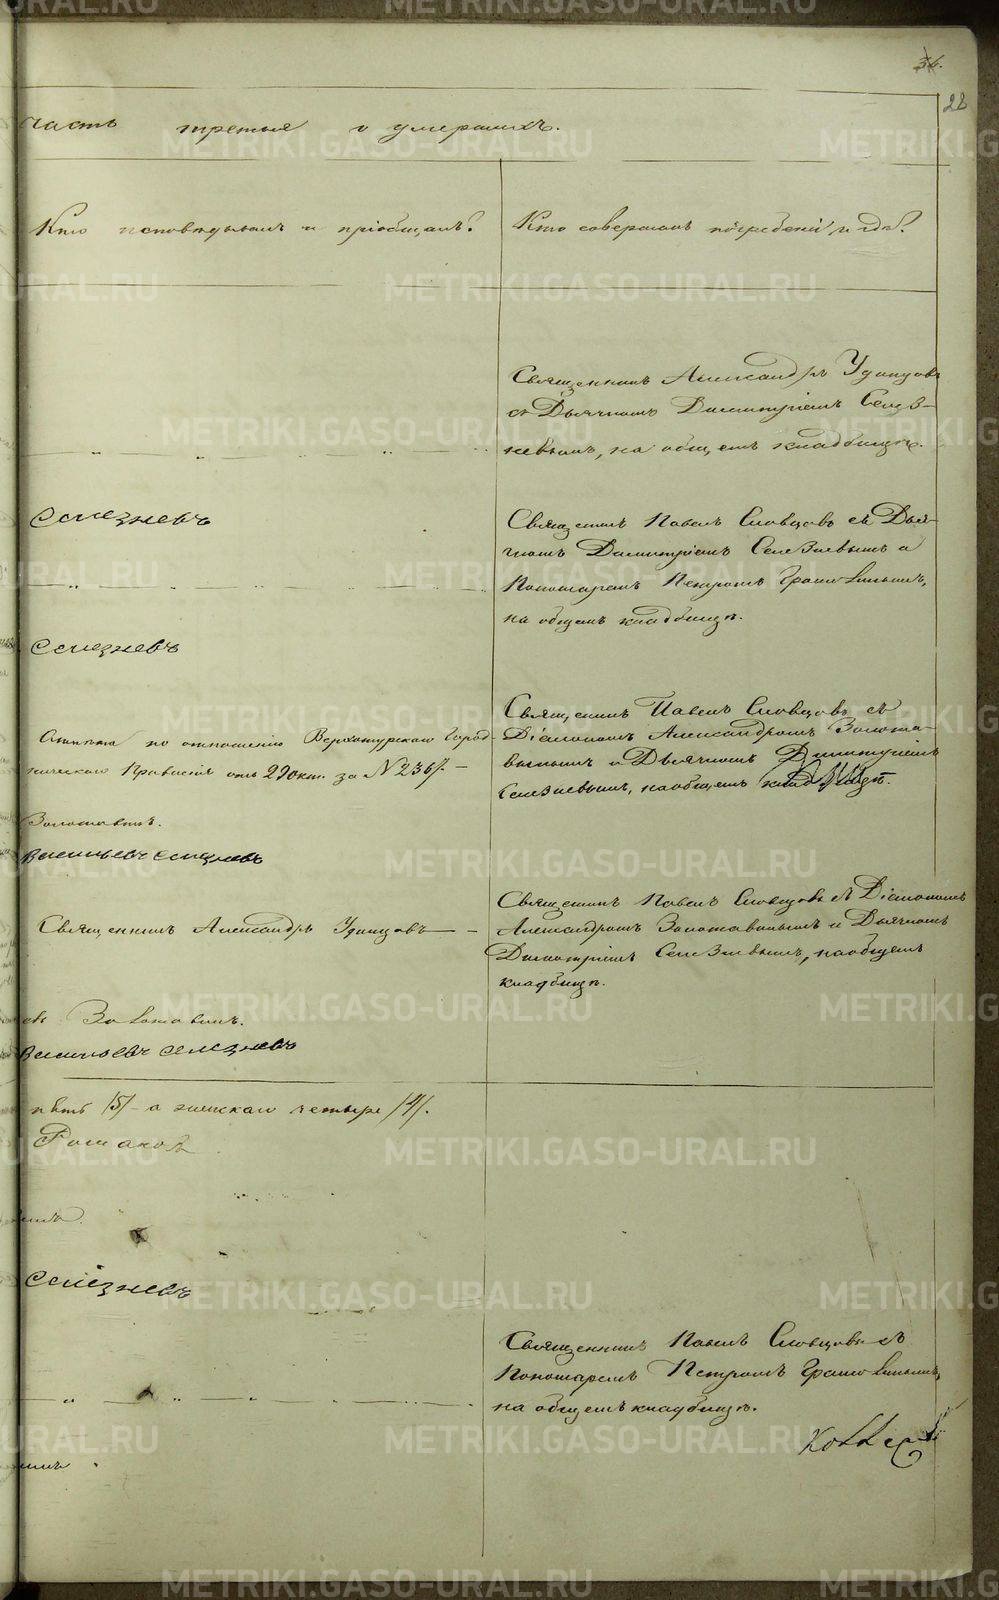 28
часть третья о умершихъ.
Кто исповѣдывалъ и пріобщалъ?
Кто совершалъ погребеніе и гдѣ?
Священникъ Александръ Удинцовъ
съ Дьячкомъ Димитріемъ Селез-
невымъ, на общемъ кладбищѣ.
Селезневъ
Священникъ Павелъ Словцовъ съ Дья-
чкомъ Димитріемъ Селезневымъ и
Пономаремъ Петромъ
на общемъ кладбищѣ.
Селезневъ
по отношенію Верхотурскаго Город-
ническаго Правленія отъ 29 окт. за №
Священникъ Павелъ Словцовъ съ
Діакономъ Александромъ Золота-
винымъ и Дьячкомъ Димитріемъ
Селезневымъ, на общемъ кладбищѣ.
Золотавинъ.
Васильевъ Селезневъ
Священникъ Александръ Удинцовъ
Священникъ Павелъ Словцовъ съ Діакономъ
Александромъ Золотавинымъ и Дьячкомъ
Димитріемъ Селезневымъ, на общемъ
кладбищѣ.
Золотавинъ.
Васильевъ Селезневъ
пять /5/ а женскаго четыре /4/.
Селезневъ
Священникъ Павелъ Словцовъ съ
Пономаремъ Петромъ
на общемъ кладбищѣ.
METRIKI.GASO-URAL.RU